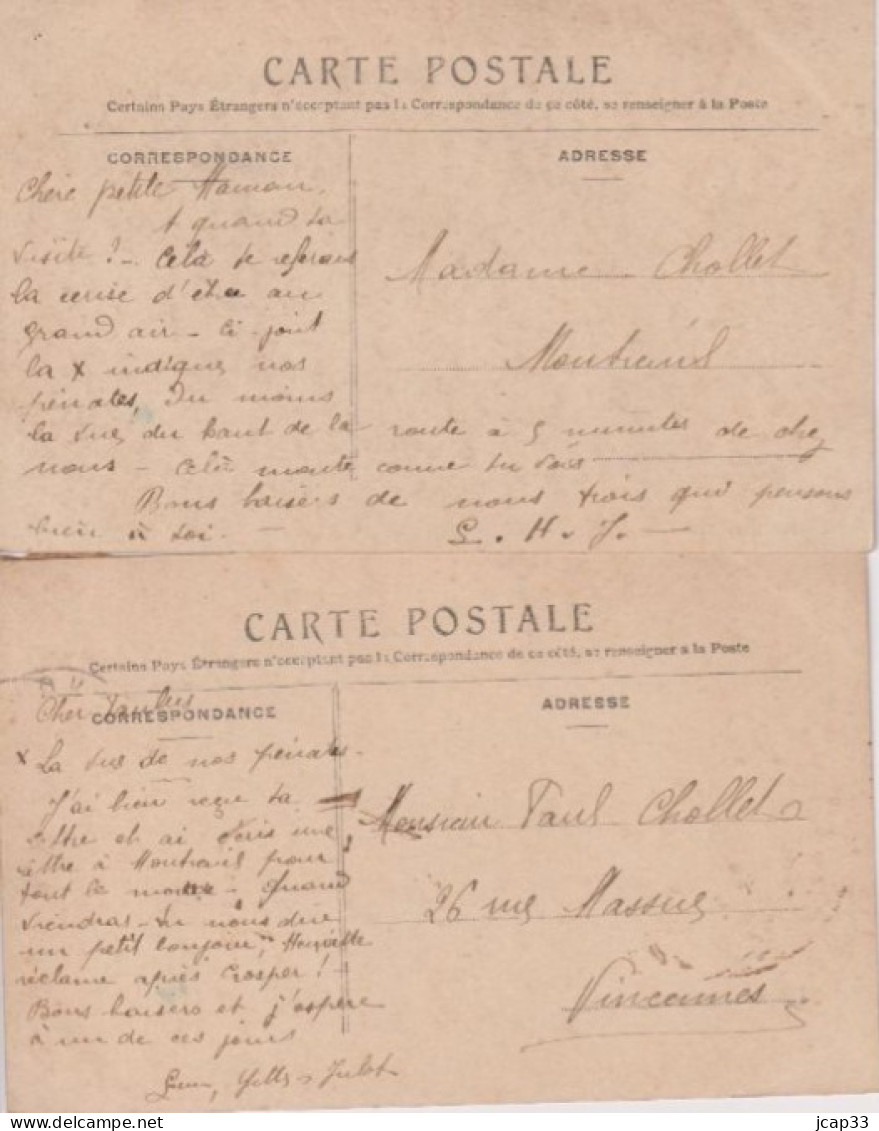 CARTE POSTALE
Certains Pays Étrangers n'acceptant pas la Correspondance de ce côté, se renseigner à la Poste
CORRESPONDANCE
Chère petite Maman,
A quand ta
visite ? - Cela te ferais
la cerise d'être au
grand air - Ci-joint
la x indique nos
pénates, Du moins
la vue du haut de la route à 5 minutes de chez
nous - Cela monte comme tu vois
Bons baisers de nous trois qui pensons
bien à toi. -
L. H. J. -
ADRESSE
Madame Chollet
Montreuil
CARTE POSTALE
Certains Pays Étrangers n'acceptant pas la Correspondance de ce côté, se renseigner à la Poste
CORRESPONDANCE
Cher
x La vue de nos pénates -
J'ai bien reçue ta
lettre et ai une
lettre à Montreuil pour
tout le monde - Quand
viendras-tu nous dire
un petit bonjour,
réclame après Prosper !
Bons baisers et j'espère
à un de ces jours
Julot
ADRESSE
Monsieur Paul Chollet
26 rue Massue
Vincennes
jcap33